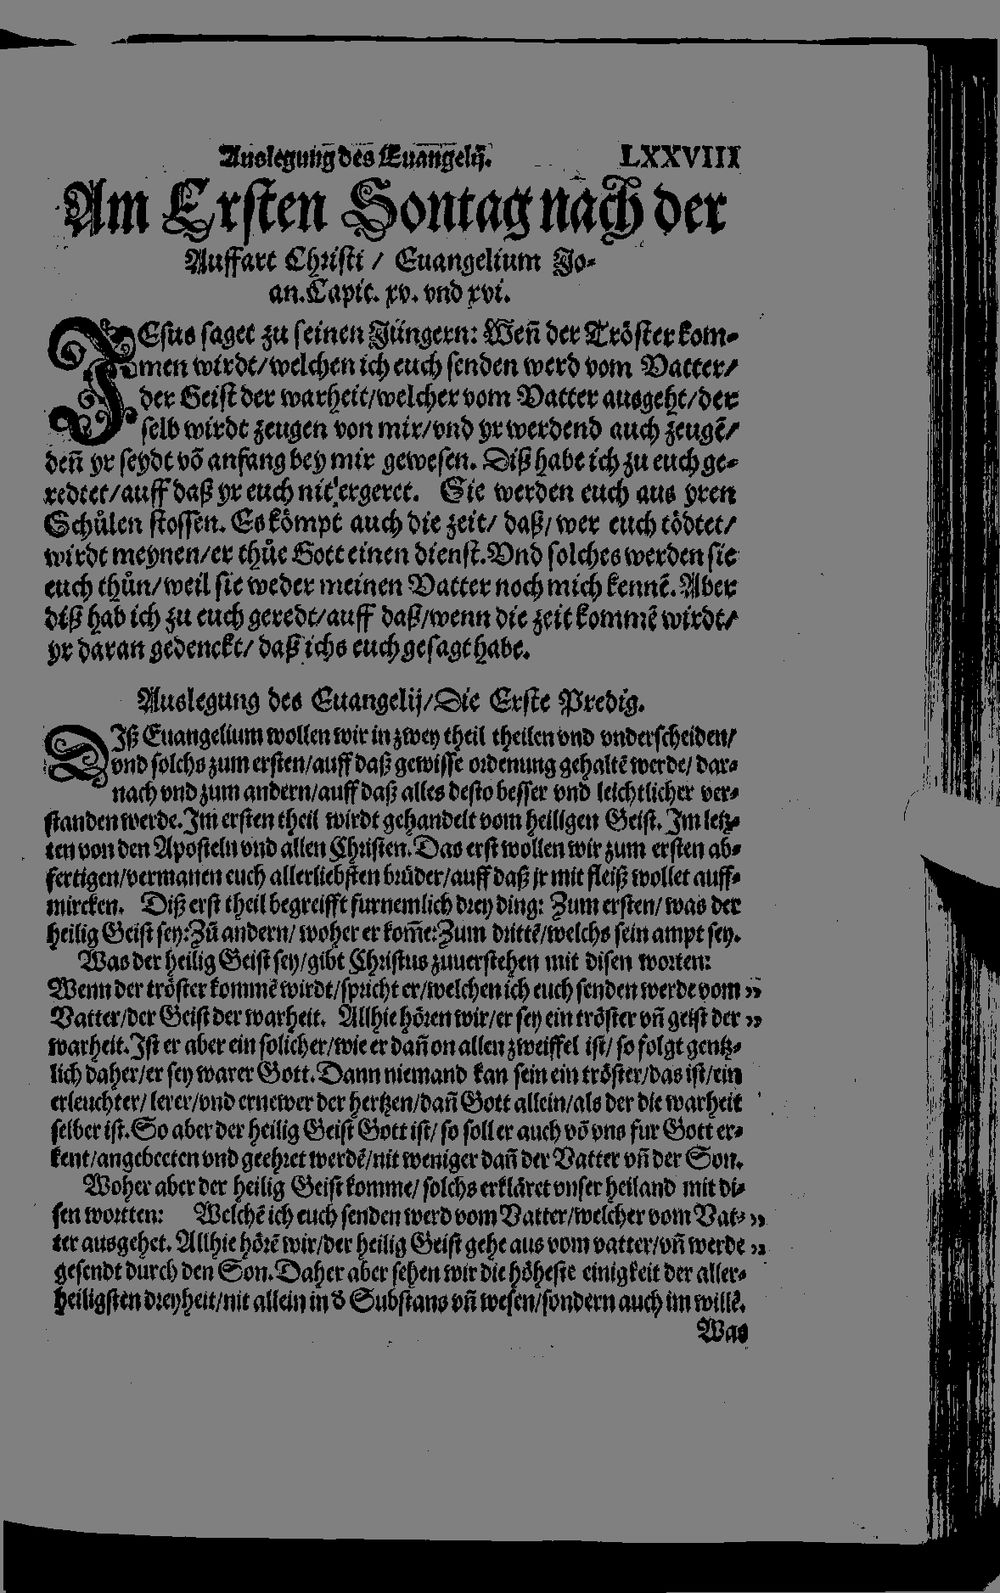 Auslegung des Euangelij. LXXVIII
Am Ersten Sontag nach der
Auffart Christi / Euangelium Jo-
an. Capit. xv. vnd xvi.
JEsus saget zu seinen Jüngern: Weñ der Tröster kom-
men wirdt/welchen ich euch senden werd vom Vatter/
der Geist der warheit/welcher vom Vatter ausgeht/der
selb wirdt zeugen von mir/vnd yr werdend auch zeugẽ/
deñ yr seydt võ anfang bey mir gewesen. Diß habe ich zu euch ge-
redtet/auff daß yr euch nit ergeret. Sie werden euch aus yren
Schůlen stossen. Es kömpt auch die zeit/ daß/wer euch tödtet/
wirdt meynen/er thůe Gott einen dienst. Vnd solches werden sie
euch thůn/weil sie weder meinen Vatter noch mich kennẽ. Aber
diß hab ich zu euch geredt/auff daß/wenn die zeit kommẽ wirdt/
yr daran gedenckt/ daß ichs euch gesagt habe.
Auslegung des Euangelij/Die Erste Predig.
DIß Euangelium wollen wir in zwey theil theilen vnd vnderscheiden/
vnd solchs zum ersten/auff daß gewisse ordenung gehaltẽ werde/ dar-
nach vnd zum andern/auff daß alles desto besser vnd leichtlicher ver-
standen werde. Im ersten theil wirdt gehandelt vom heiligen Geist. Im letz-
ten von den Aposteln vnd allen Christen. Das erst wollen wir zum ersten ab-
fertigen/vermanen euch allerliebsten brüder/auff daß jr mit fleiß wollet auff-
mircken. Diß erst theil begreifft furnemlich drey ding: Zum ersten/ was der
heilig Geist sey: Zũ andern/ woher er kom̃e: Zum drittẽ/welchs sein ampt sey.
Was der heilig Geist sey/gibt Christus zuuerstehen mit disen worten:
Wenn der tröster kommẽ wirdt/spricht er/welchen ich euch senden werde vom „
Vatter/der Geist der warheit. Allhie hören wir/er sey ein tröster vñ geist der „
warheit. Ist er aber ein solicher/wie er dañ on allen zweiffel ist/ so folgt gentz-
lich daher/er sey warer Gott. Dann niemand kan sein ein tröster/das ist/ein
erleuchter/ lerer/vnd ernewer der hertzen/dañ Gott allein/als der die warheit
selber ist. So aber der heilig Geist Gott ist/ so soll er auch võ vns fur Gott er-
kent/angebeeten vnd geehret werdẽ/nit weniger dañ der Vatter vñ der Son.
Woher aber der heilig Geist komme/ solchs erkläret vnser heiland mit di-
sen wortten: Welchẽ ich euch senden werd vom Vatter/welcher vom Vat- „
ter ausgehet. Allhie hörẽ wir/der heilig Geist gehe aus vom vatter/vñ werde „
gesendt durch den Son. Daher aber sehen wir die höheste einigkeit der aller-
heiligsten dreyheit/nit allein in d̕ Substans vñ wesen/sondern auch im willẽ.
Was